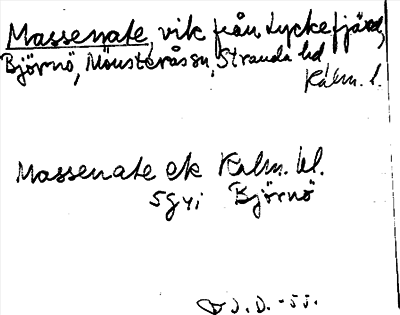 Massenate, vik från Lyckefjärd,
Björnö, Mönsterås sn, Stranda hd
Kalm. l.
Massenate ek Kalm. bl.
5gyi Björnö
J. D. -55.